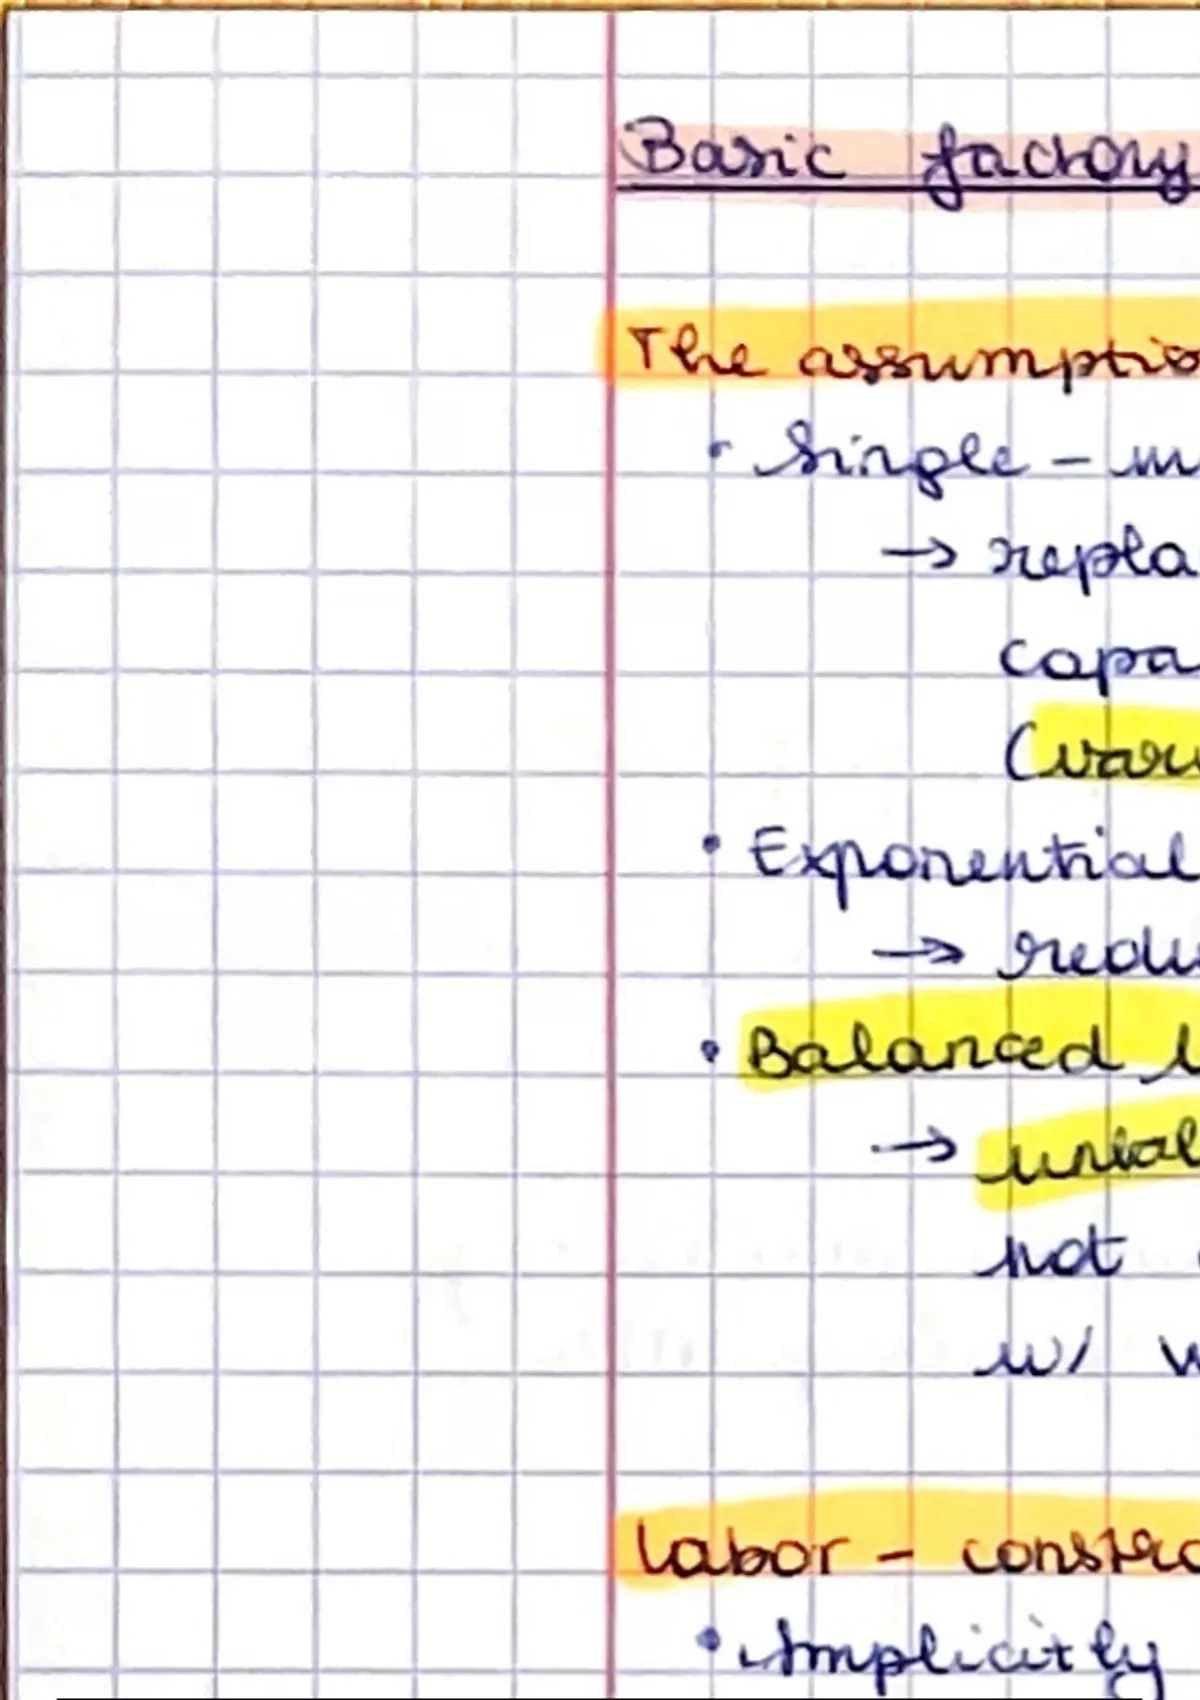 Basic factory
The assumptio
• Single - m
→ repla
capa
(varu
• Exponential
→ redu
• Balanced l
→ unbal
not
w/ w
Labor - constra
• Implicitly